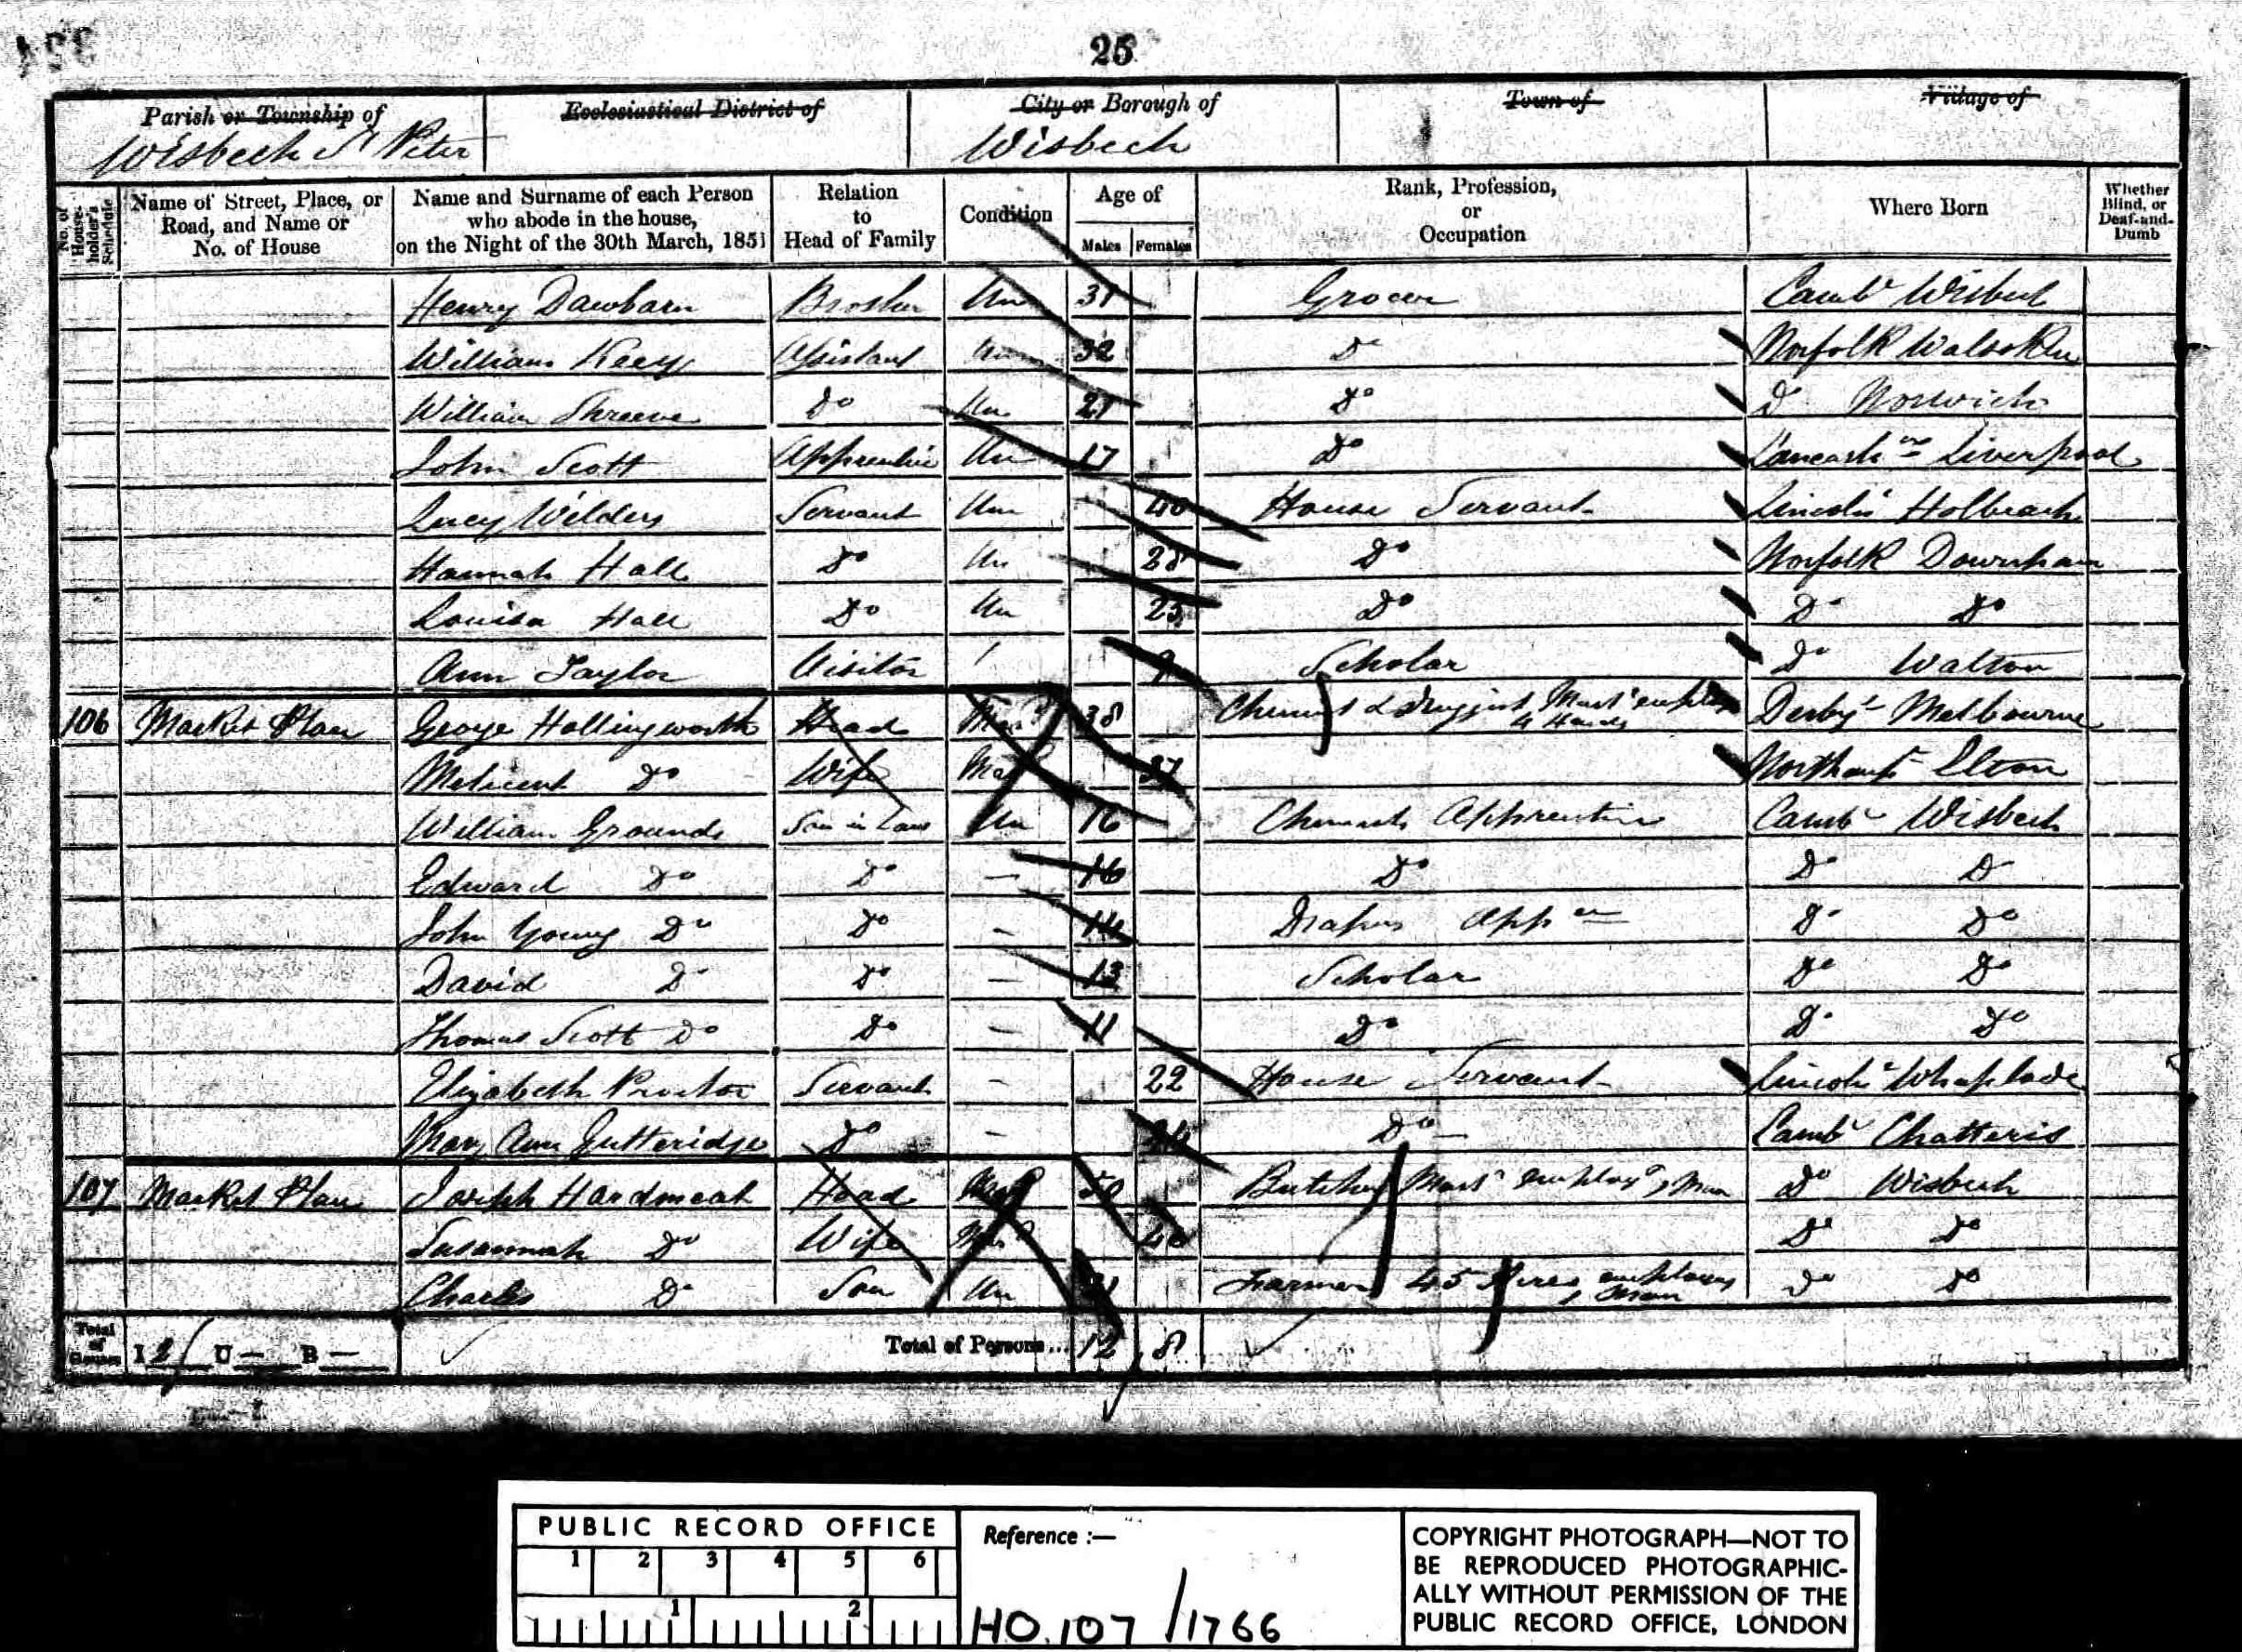 25
Parish or Township of
Wisbech St Peter
Ecclesiastical District of
City or Borough of
Wisbech
Town of
Village of
No. of House-holder's Schedule
Name of Street, Place, or Road, and Name or No. of House
Name and Surname of each Person who abode in the house, on the Night of the 30th March, 1851
Relation to Head of Family
Condition
Age of
Males Females
Rank, Profession, or Occupation
Where Born
Whether Blind, or Deaf-and-Dumb
Henry Dawbarn Brother Un 31 Grocer Cambr Wisbech
William Keey Assistant Un 32 Do Norfolk Walsoken
William Shreeve Do Un 21 Do Do Norwich
John Scott Apprentice Un 17 Do Lancash Liverpool
Lucy Wilders Servant Un 40 House Servant Lincoln Holbeach
Hannah Hall Do Un 28 Do Norfolk Downham
Louisa Hall Do Un 23 Do Do Do
Ann Taylor Visitor 9 Scholar Do Walton
106 Market Place George Hollingworth Head Mard 38 Chemist & druggist Mastr 4 Hands Derbyr Melbourne
Melicent Do Wife Mar 37 Northampt Elton
William Grounds Son in Law Un 16 Chemists Apprentice Cambr Wisbech
Edward Do Do — 16 Do Do Do
John Young Do Do — 14 Drapers App Do Do
David Do Do — 13 Scholar Do Do
Thomas Scott Do Do — 11 Do Do Do
Elizabeth Proctor Servant — 22 House Servant Lincolnr Whaplode
Mary Ann Gutteridge Do — 24 Do Cambr Chatteris
107 Market Place Joseph Hardmeat Head Mar 50 Butcher Mastr employg 1 Man Do Wisbech
Susannah Do Wife Mar 40 Do Do
Charles Do Son Un 21 Farmer 45 Acres employing 1 Man Do Do
Total of Houses I 2 U — B —
Total of Persons... 12 8
PUBLIC RECORD OFFICE
1 2 3 4 5 6
1 2
Reference :—
HO. 107 / 1766
COPYRIGHT PHOTOGRAPH—NOT TO
BE REPRODUCED PHOTOGRAPHIC-
ALLY WITHOUT PERMISSION OF THE
PUBLIC RECORD OFFICE, LONDON